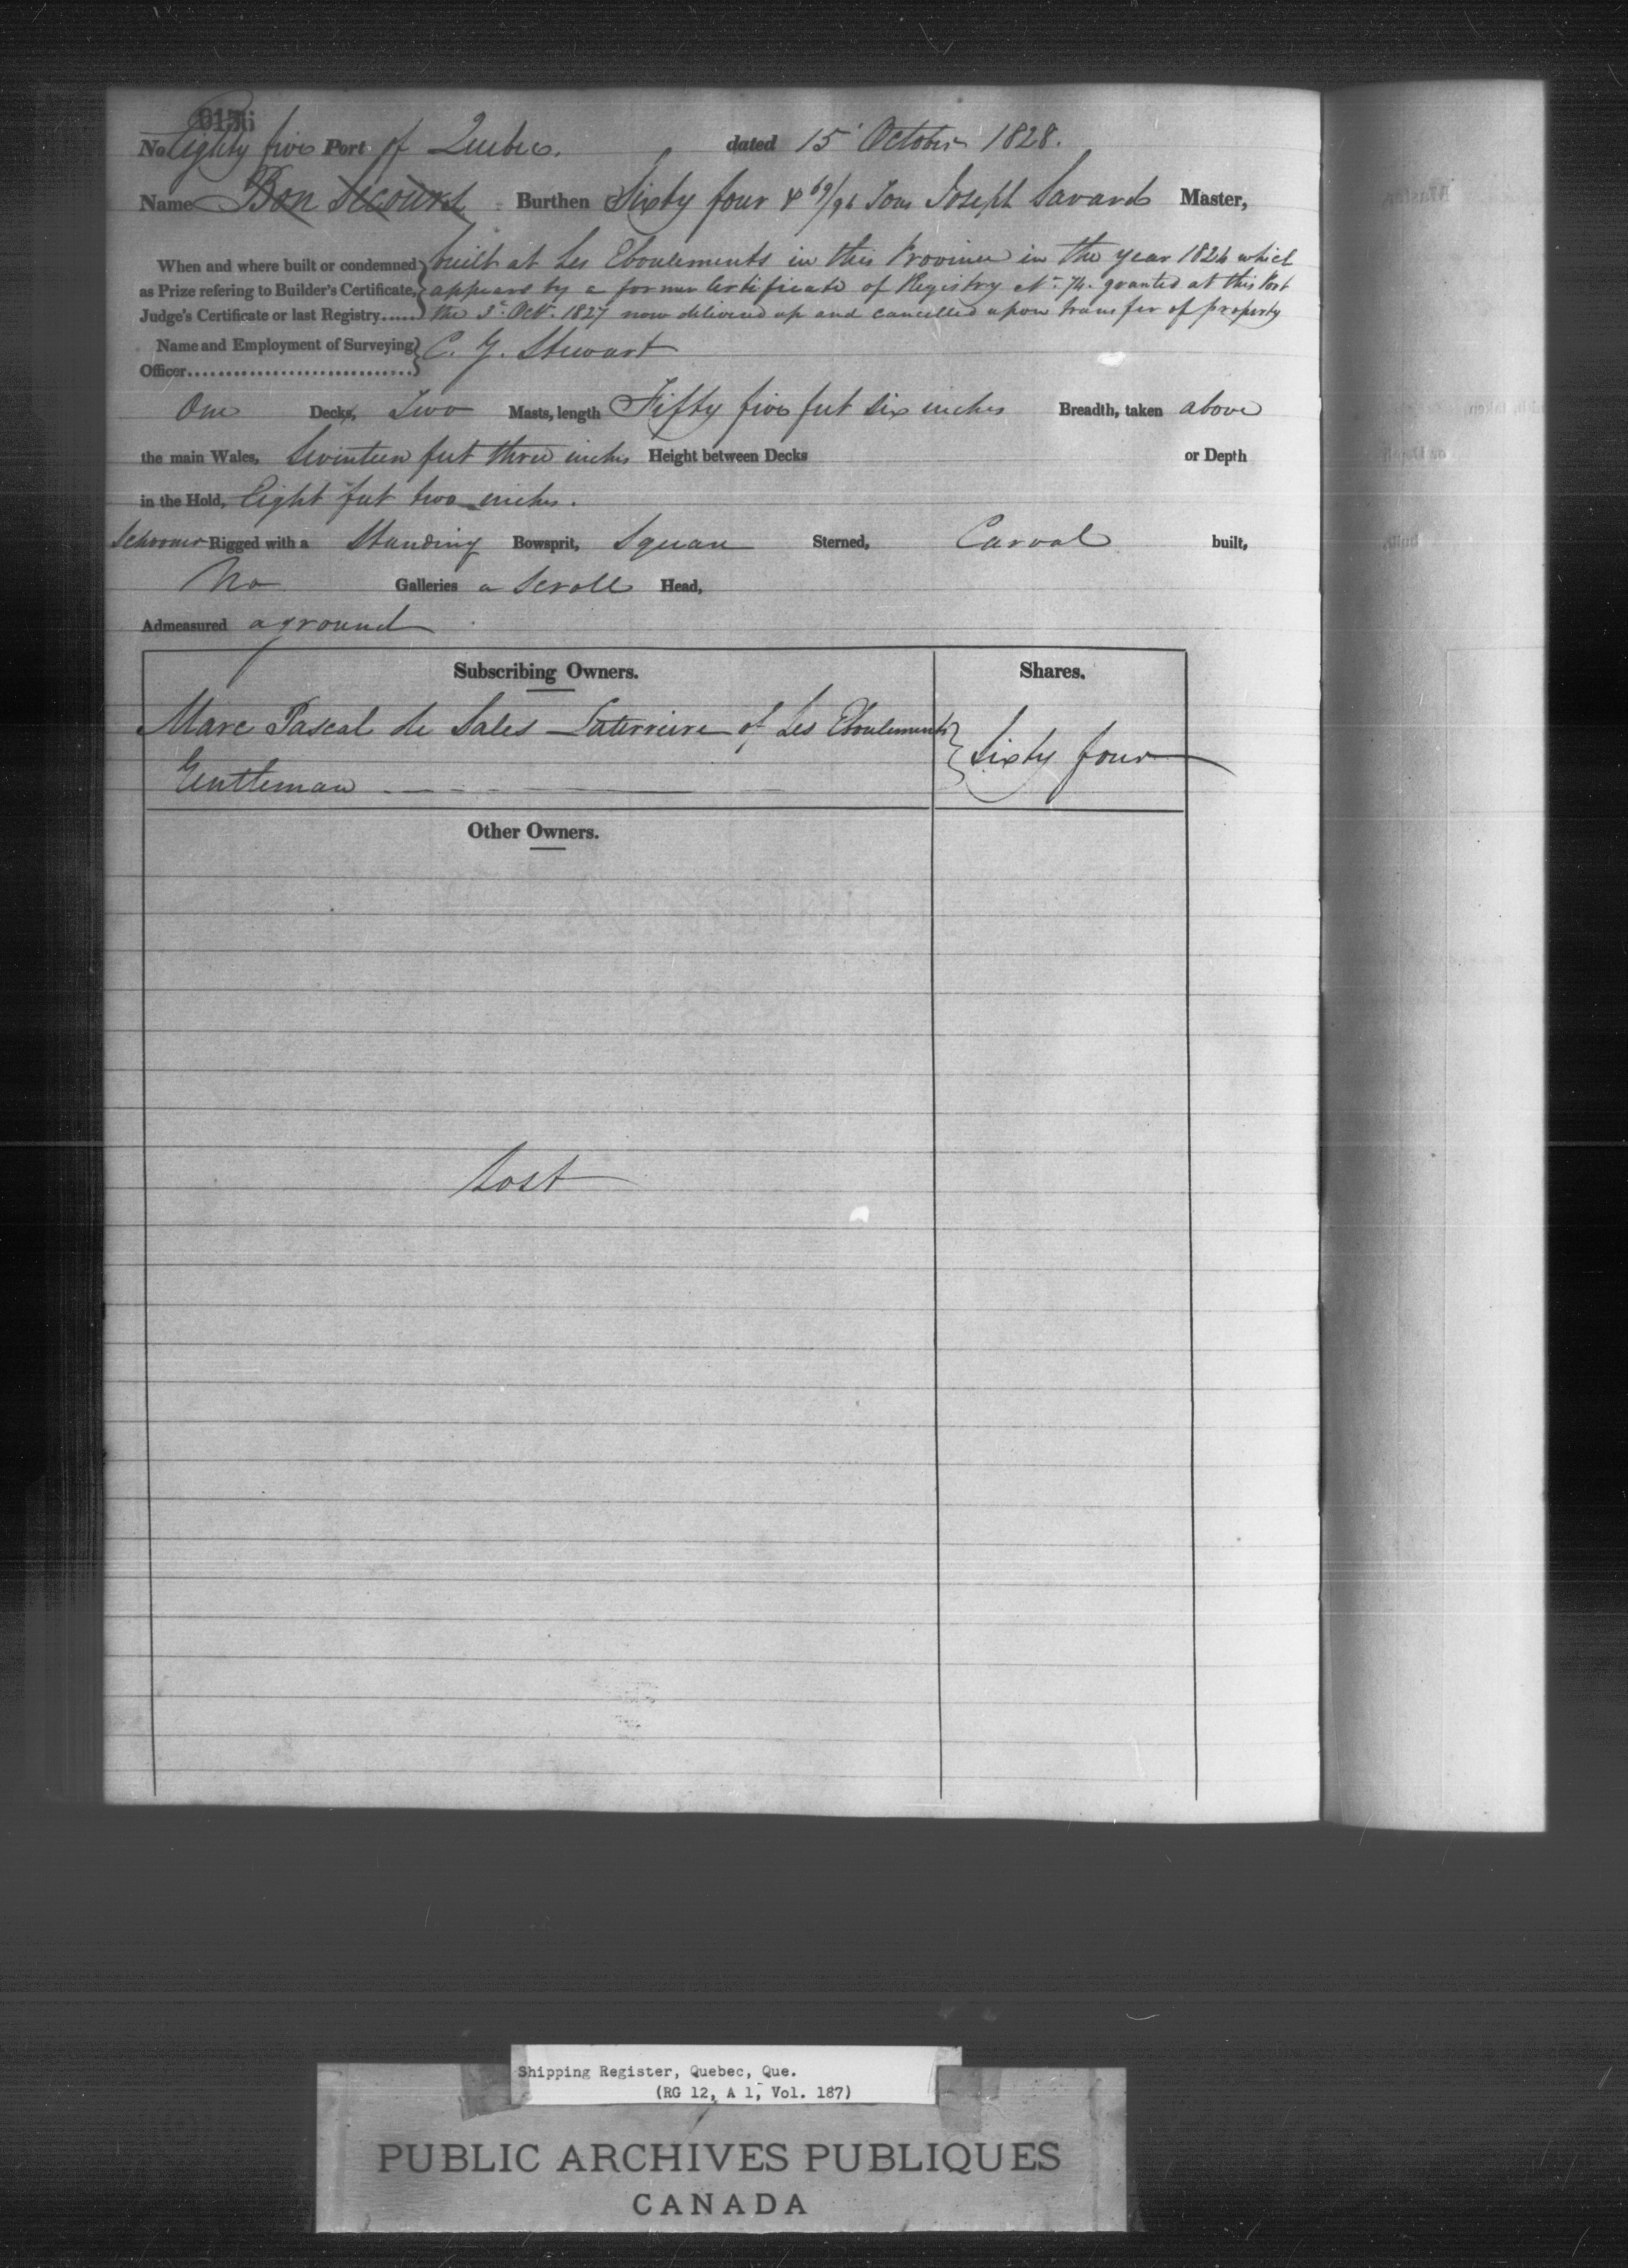 No Eighty five Port of Quebec. dated 15 October 1828.
Name Bon secours Burthen Sixty four & 69/94 Tons Joseph Savard Master,
When and where built or condemned as Prize refering to Builder's Certificate, Judge's Certificate or last Registry...... built at Les Eboulements in this Province in the year 1824 which
appears by a former Certificate of Registry No. 74. granted at this Port
the 3d. Oct. 1827 now delivered up and cancelled upon transfer of property
Name and Employment of Surveying Officer.............................. C. G. Stewart
One Decks, Two Masts, length Fifty five feet six inches Breadth, taken above
the main Wales, Seventeen feet three inches Height between Decks or Depth
in the Hold, Eight feet two inches.
Schooner Rigged with a Standing Bowsprit, Square Sterned, Carval built,
No Galleries a Scroll Head,
Admeasured aground
Subscribing Owners. Shares.
Marc Pascal de Sales Laterriere of Les Eboulements
Gentleman Sixty four
Other Owners.
Lost
Shipping Register, Quebec, Que.
(RG 12, A 1, Vol. 187)
PUBLIC ARCHIVES PUBLIQUES
CANADA